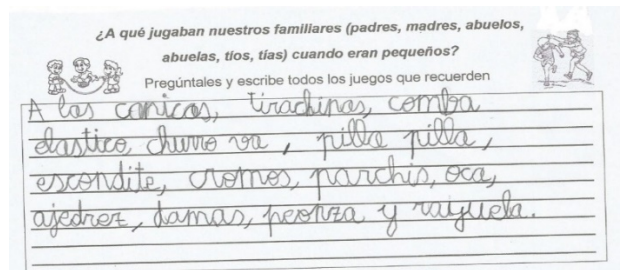 ¿A qué jugaban nuestros familiares (padres, madres, abuelos,
abuelas, tíos, tías) cuando eran pequeños?
Pregúntales y escribe todos los juegos que recuerden
A las canicas, tirachinas, comba
elastico, churro va, pilla pilla,
escondite, cromos, parchis, oca,
ajedrez, damas, peonza y rayuela.